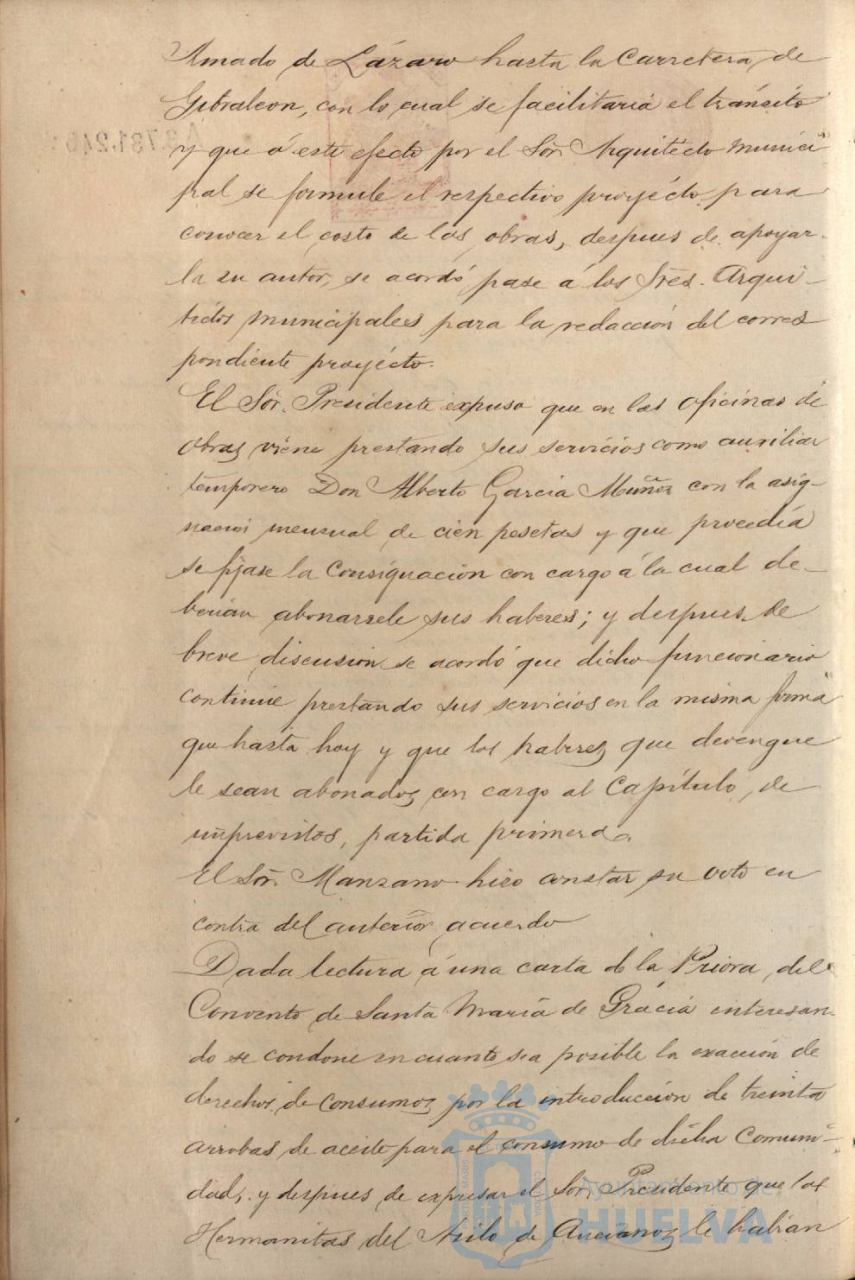 Amado de Lázaro hasta la Carretera de
Gibraleon, con lo cual se facilitaria el tránsito
y que á este efecto por el Sor. Arquitecto munici-
pal se formule el respectivo proyécto para
conocer el costo de las obras, despues de apoyar-
la su autor, se acordó pase á los Sres. Arqui-
téctos municipales para la redacción del corres
pondiente proyécto.
El Sor. Presidente expuso que en las oficinas de
obras viene prestando sus servicios como auxiliar
temporero Don Alberto Garcia Muñoz con la asig-
nacion mensual de cien pesetas y que procedia
se fijase la Consignación con cargo á la cual de-
berian abonarsele sus haberes; y despues de
breve discusion se acordó que dicho funcionario
continúe prestando sus servicios en la misma forma
que hasta hoy y que los haberes que devengue
le sean abonados con cargo al Capítulo de
imprevistos, partida primera.
El Sor. Manzano hizo constar su voto en
contra del anterior acuerdo
Dada lectura á una carta de la Priora del
Convento de Santa María de Grácia interesan-
do se condone en cuanto sea posible la exacción de
derechos de consumos por la introducción de treinta
arrobas de aceite para el consumo de dicha Comuni-
dad, y despues de expresar el Sor. Presidente que las
Hermanitas del Asilo de Ancianos le habian
Ayuntamiento de
HUELVA